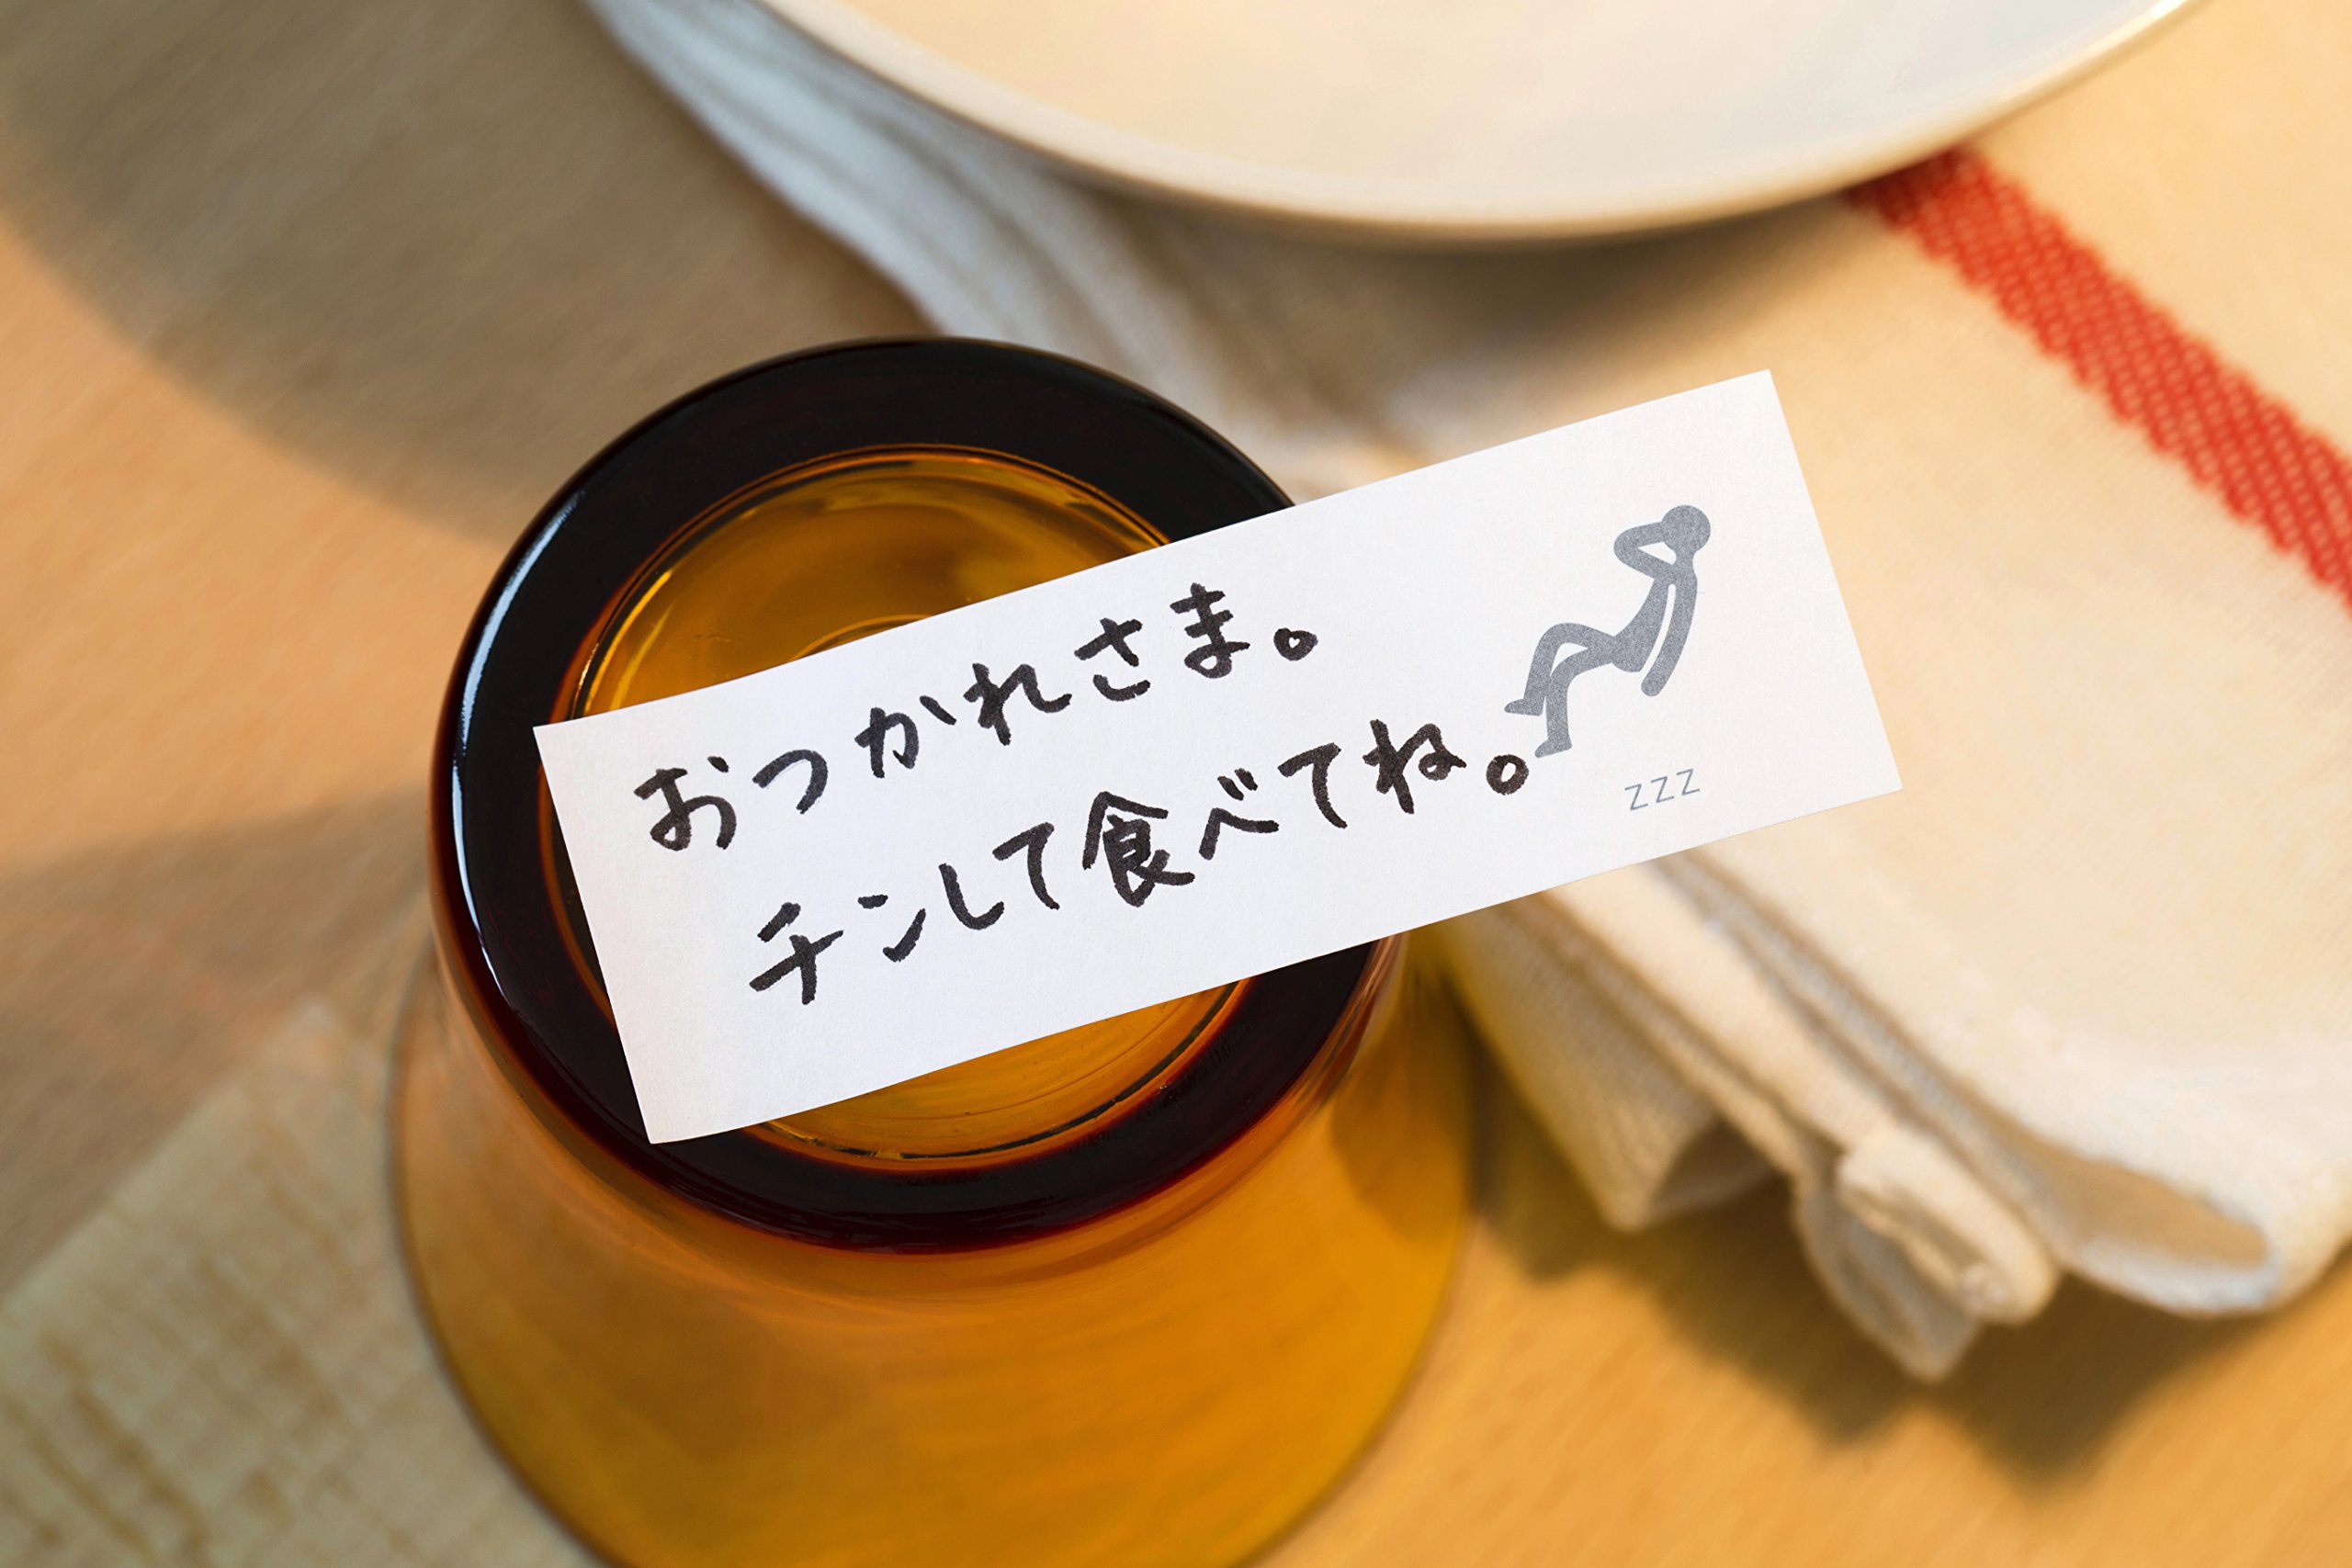 おつかれさま。
チンして食べてね。
zzz